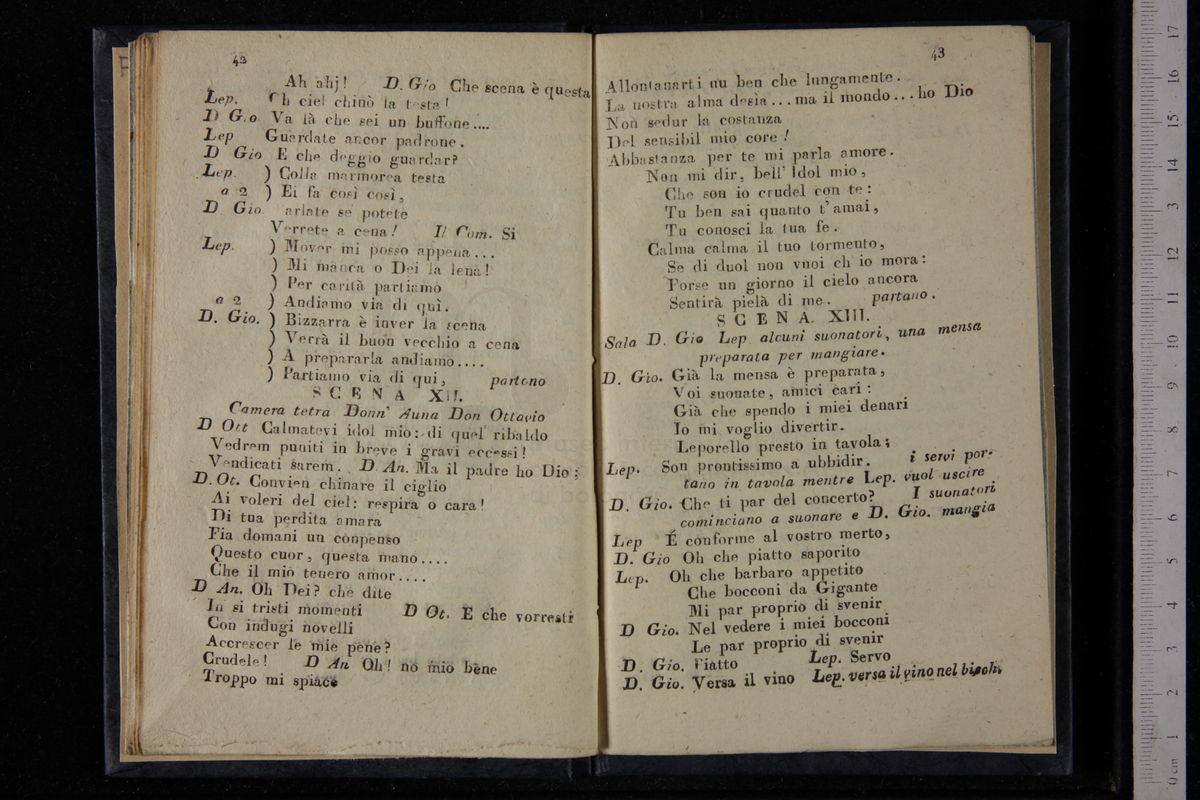 42
Ah ahj! D. Gio Che scena è questa
Lep. Oh ciel chinò la testa!
D Gio Va là che sei un buffone....
Lep Guardate ancor padrone.
D Gio E che deggio guardar?
Lep. ) Colla marmorea testa
a 2 ) Ei fa così così,
D. Gio arlate se potete
Verrete a cena! Il Com. Si
Lep. ) Mover mi posso appena...
) Mi manca o Dei la lena!
) Per carità partiamo
a 2 ) Andiamo via di quì.
D. Gio. ) Bizzarra è inver la scena
) Verrà il buon vecchio a cena
) A prepararla andiamo....
) Partiamo via di qui, partono
SCENA XII.
Camera tetra Donn' Auna Don Ottavio
D Ott Calmatevi idol mio: di quel ribaldo
Vedrem puniti in breve i gravi eccessi!
Vendicati sarem. D. An. Ma il padre ho Dio;
D. Ot. Convien chinare il ciglio
Ai voleri del ciel: respira o cara!
Di tua perdita amara
Fia domani un conpenso
Questo cuor, questa mano....
Che il mio tenero amor....
D An. Oh Dei? che dite
In si tristi momenti D Ot. E che vorresti
Con indugi novelli
Accrescer le mie pene?
Crudele! D An Oh! no mio bene
Troppo mi spiace
43
Allontanarti uu ben che lungamente.
La nostra alma desia... ma il mondo... ho Dio
Non sedur la costanza
Del sensibil mio core!
Abbastanza per te mi parla amore.
Non mi dir, bell' Idol mio,
Che son io crudel con te:
Tu ben sai quanto t' amai,
Tu conosci la tua fe.
Calma calma il tuo tormento,
Se di duol non vuoi ch' io mora:
Forse un giorno il cielo ancora
Sentirà pielà di me. partano.
SCENA. XIII.
Sala D. Gio Lep. alcuni suonatori, una mensa
preparata per mangiare.
D. Gio. Già la mensa è preparata,
Voi suonate, amici cari:
Già che spendo i miei denari
Io mi voglio divertir.
Leporello presto in tavola;
Lep. Son prontissimo a ubbidir. i servi por-
tano in tavola mentre Lep. vuol uscire
D. Gio. Che ti par del concerto? I suonatori
cominciano a suonare e D. Gio. mangia
Lep É conforme al vostro merto,
D. Gio Oh che piatto saporito
Lep. Oh che barbaro appetito
Che bocconi da Gigante
Mi par proprio di svenir
D Gio. Nel vedere i miei bocconi
Le par proprio di svenir
D. Gio. Piatto Lep. Servo
D. Gio. Versa il vino Lep. versa il vino nel bicch.